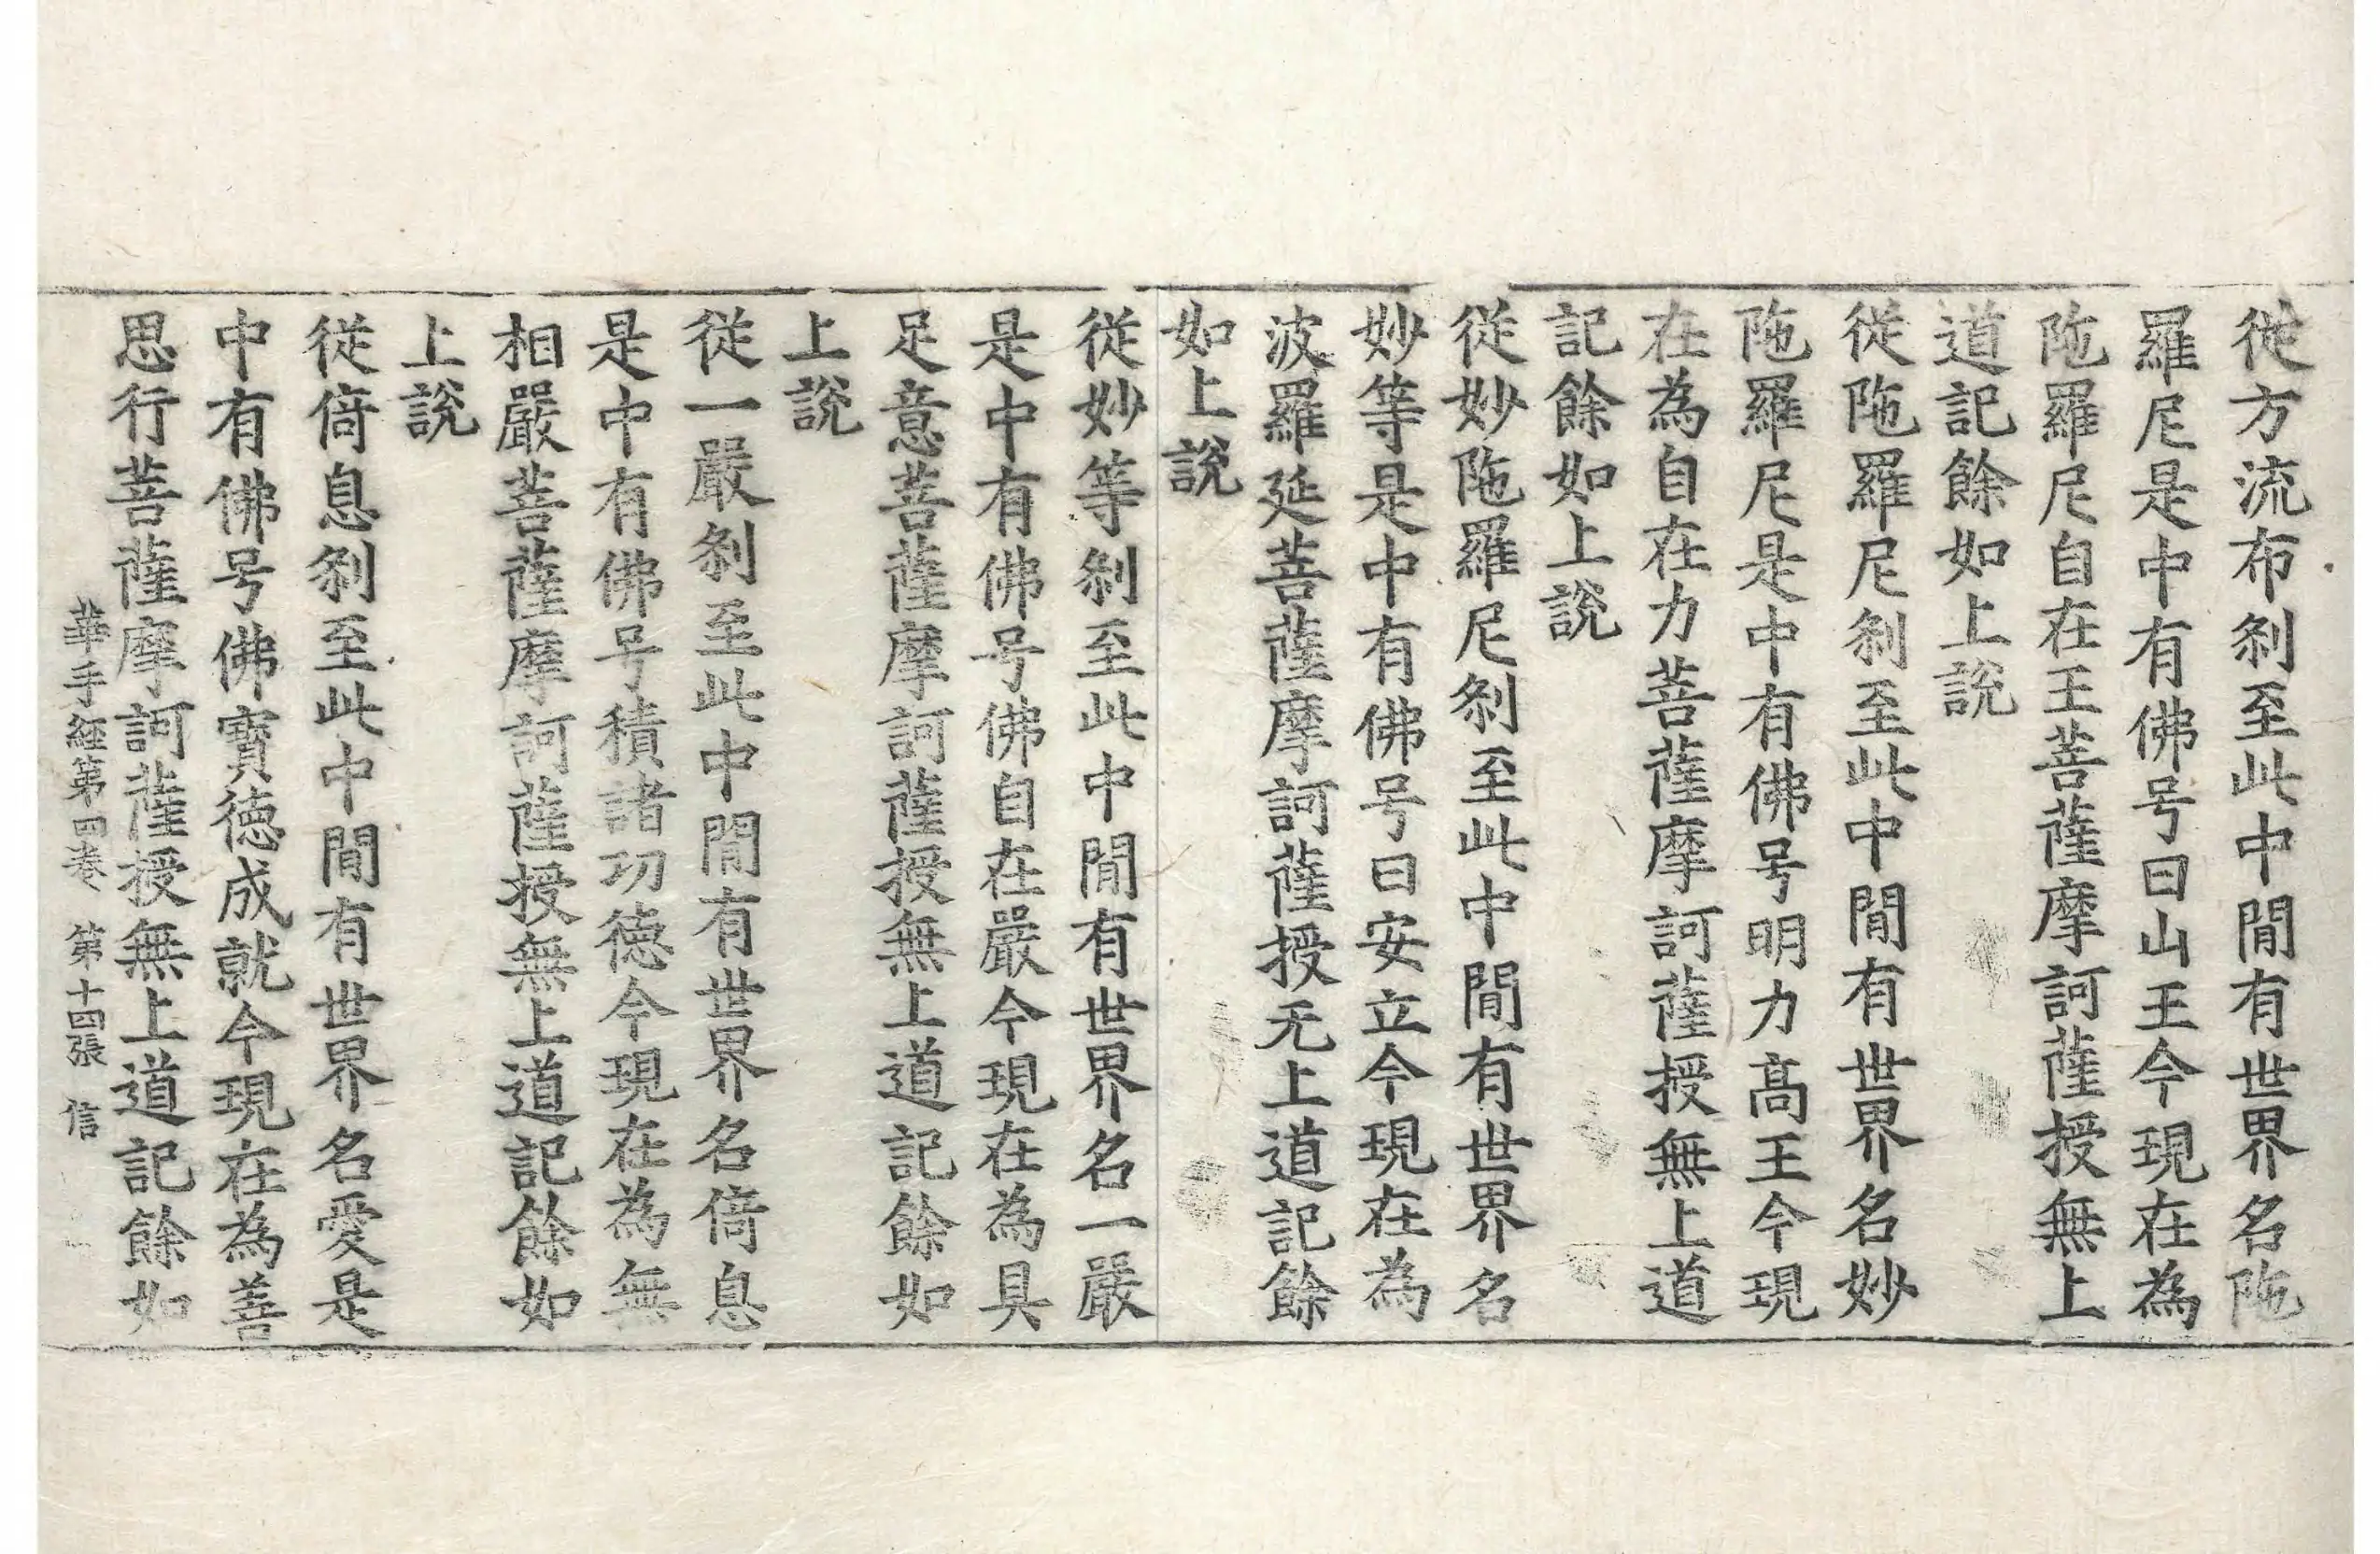 從方流布刹至此中閒有世界名陁
羅尼是中有佛号曰山王今現在為
陁羅尼自在王菩薩摩訶薩授無上
道記餘如上說
從陁羅尼刹至此中閒有世界名妙
陁羅尼是中有佛号明力高王今現
在為自在力菩薩摩訶薩授無上道
記餘如上說
從妙陁羅尼刹至此中閒有世界名
妙等是中有佛号曰安立今現在為
波羅延菩薩摩訶薩授无上道記餘
如上說
從妙等刹至此中閒有世界名一嚴
是中有佛号佛自在嚴今現在為具
足意菩薩摩訶薩授無上道記餘如
上說
從一嚴刹至此中閒有世界名倚息
是中有佛号積諸功德今現在為無
相嚴菩薩摩訶薩授無上道記餘如
上說
從倚息刹至此中閒有世界名愛是
中有佛号佛寶德成就今現在為善
思行菩薩摩訶薩授無上道記餘如
華手經第四卷 第十四張 信